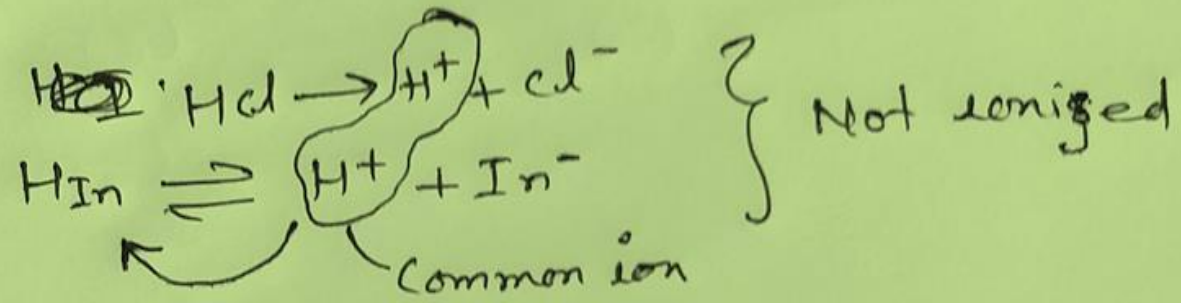 HCl → H⁺ + Cl⁻
HIn ⇌ H⁺ + In⁻
Not ionized
Common ion